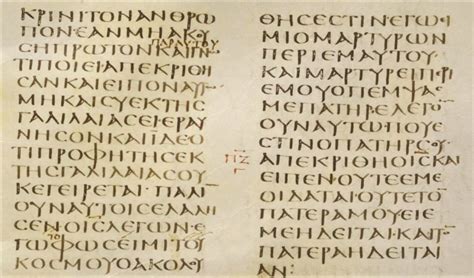 ΚΡΙΝΙΤΟΝΑΝΘΡΩ
ΠΟΝΕΑΝΜΗΑΚΟΥ
ΠΑΡΑΥΤΟΥ
ϹΗΠΡΩΤΟΝΚΑΙΓΝΩ
ΤΙΠΟΙΕΙΑΠΕΚΡΙΘΗ
ϹΑΝΚΑΙΕΙΠΟΝΑΥΤΩ
ΜΗΚΑΙϹΥΕΚΤΗϹ
ΓΑΛΙΛΑΙΑϹΕΙΕΡΑΥ
ΝΗϹΟΝΚΑΙΪΔΕΟ
ΤΙΠΡΟΦΗΤΗϹΕΚ
ΤΗϹΓΑΛΙΛΑΙΑϹΟΥ
ΚΕΓΕΙΡΕΤΑΙ·ΠΑΛΙ
ΟΥΝΑΥΤΟΙϹΕΛΑΛΗ
ϹΕΝΟΙϹΛΕΓΩΝΕ
ΓΩΦΩϹΕΙΜΙΤΟΥ
ΚΟϹΜΟΥΟΑΚΟΛΟΥ
ΘΗϹΕϹΤΙΝΕΓΩΕΙ
ΜΙΟΜΑΡΤΥΡΩΝ
ΠΕΡΙΕΜΑΥΤΟΥ
ΚΑΙΜΑΡΤΥΡΕΙΠΕΡΙ
ΕΜΟΥΟΠΕΜΨΑϹ
ΜΕΠΑΤΗΡΕΛΕΓΟ
ΟΥΝΑΥΤΩΠΟΥΕ
ϹΤΙΝΟΠΑΤΗΡϹΟΥ
ΑΠΕΚΡΙΘΗΟΙϹΚΑΙ
ΕΙΠΕΝΟΥΤΕΕΜΕ
ΟΙΔΑΤΑΙΟΥΤΕΤΟ
ΠΑΤΕΡΑΜΟΥΕΙΕ
ΜΕΗΔΕΙΤΑΙΚΑΙΤΟ
ΠΑΤΕΡΑΗΔΕΙΤΑΙ
ΑΝ·